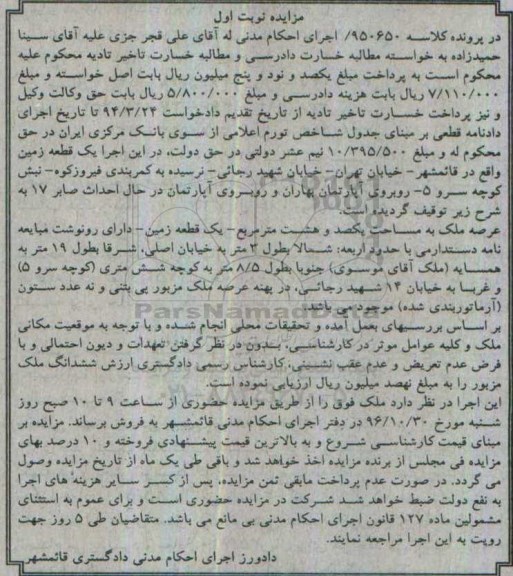 مزایده نوبت اول
در پرونده کلاسه ۹۵۰۶۵۰/ اجرای احکام مدنی له آقای علی قجر جزی علیه آقای سینا
حمیدزاده به خواسته مطالبه خسارت دادرسی و مطالبه خسارت تاخیر تادیه محکوم علیه
محکوم است به پرداخت مبلغ یکصد و نود و پنج میلیون ریال بابت اصل خواسته و مبلغ
۷/۱۱۰/۰۰۰ ریال بابت هزینه دادرسی و مبلغ ۵/۸۰۰/۰۰۰ ریال بابت حق وکالت وکیل
و نیز پرداخت خسارت تاخیر تادیه از تاریخ تقدیم دادخواست ۹۴/۳/۲۴ تا تاریخ اجرای
دادنامه قطعی بر مبنای جدول شاخص تورم اعلامی از سوی بانک مرکزی ایران در حق
محکوم له و مبلغ ۱۰/۳۹۵/۵۰۰ نیم عشر دولتی در حق دولت، در این اجرا یک قطعه زمین
واقع در قائمشهر- خیابان تهران- خیابان شهید رجائی- نرسیده به کمربندی فیروزکوه- نبش
کوچه سرو ۵- روبروی آپارتمان بهاران و روبروی آپارتمان در حال احداث صابر ۱۷ به
شرح زیر توقیف گردیده است.
عرصه ملک به مساحت یکصد و هشت مترمربع- یک قطعه زمین- دارای رونوشت مبایعه
نامه دستدارمی با حدود اربعه: شمالا بطول ۳ متر به خیابان اصلی، شرقا بطول ۱۹ متر به
همسایه (ملک آقای موسوی) جنوبا بطول ۸/۵ متر به کوچه شش متری (کوچه سرو ۵)
و غربا به خیابان ۱۴ شهید رجائی، در پهنه عرصه ملک مزبور پی بتنی و نه عدد ستون
(آرماتوربندی شده) موجود می باشد.
ParsNamadData
بر اساس بررسیهای بعمل آمده و تحقیقات محلی انجام شده و با توجه به موقعیت مکانی
ملک و کلیه عوامل موثر در کارشناسی، بدون در نظر گرفتن تعهدات و دیون احتمالی و با
فرض عدم تعریض و عدم عقب نشینی، کارشناس رسمی دادگستری ارزش ششدانگ ملک
مزبور را به مبلغ نهصد میلیون ریال ارزیابی نموده است.
این اجرا در نظر دارد ملک فوق را از طریق مزایده حضوری از ساعت ۹ تا ۱۰ صبح روز
شنبه مورخ ۹۶/۱۰/۳۰ در دفتر اجرای احکام مدنی قائمشهر به فروش برساند. مزایده بر
مبنای قیمت کارشناسی شروع و به بالاترین قیمت پیشنهادی فروخته و ۱۰ درصد بهای
مزایده فی مجلس از برنده مزایده اخذ خواهد شد و باقی طی یک ماه از تاریخ مزایده وصول
می گردد. در صورت عدم پرداخت مابقی ثمن مزایده، پس از کسر سایر هزینه های اجرا
به نفع دولت ضبط خواهد شد شرکت در مزایده حضوری است و برای عموم به استثنای
مشمولین ماده ۱۲۷ قانون اجرای احکام مدنی بی مانع می باشد. متقاضیان طی ۵ روز جهت
رویت به این اجرا مراجعه نمایند.
دادورز اجرای احکام مدنی دادگستری قائمشهر